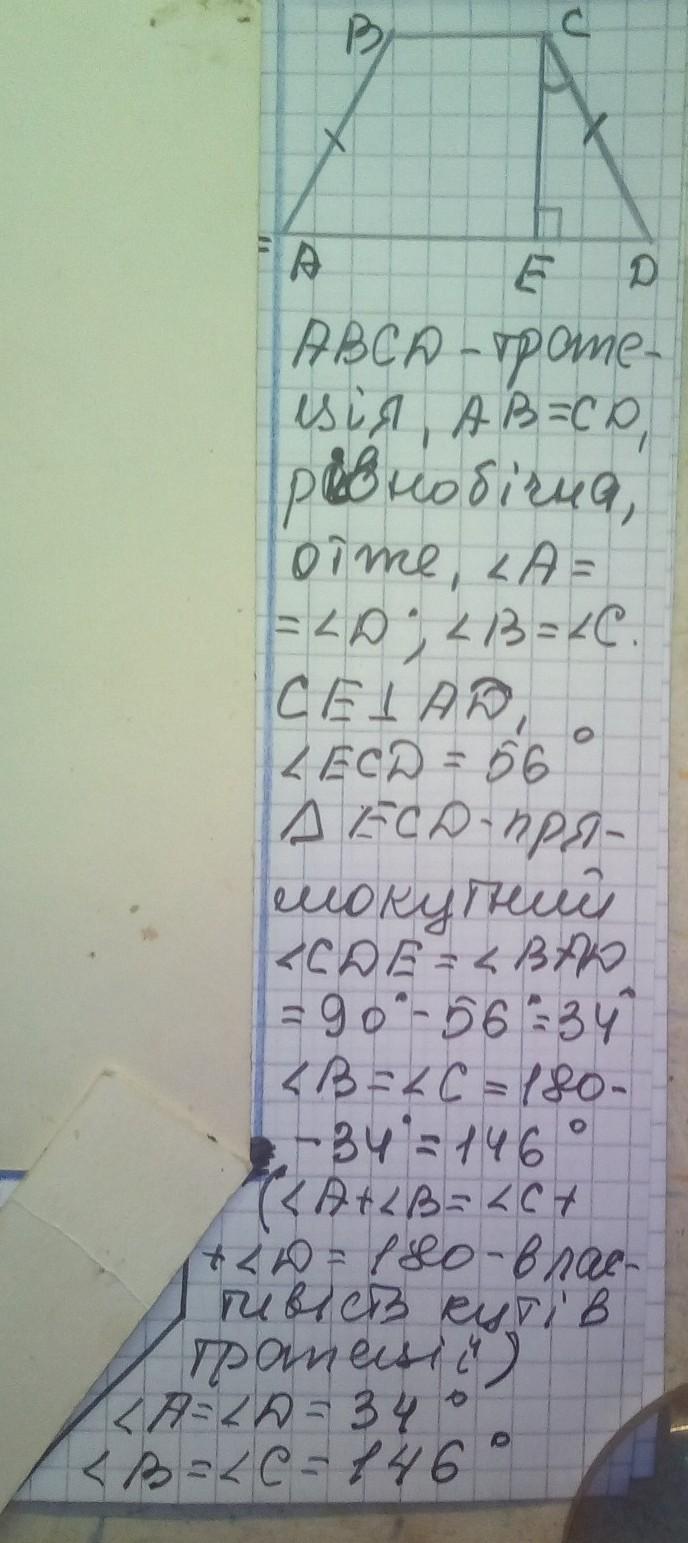 B C
= A E D
ABCD - трапе-
ція, AB=CD,
рівнобічна,
отже, ∠A=
=∠D; ∠B=∠C.
CE⊥AD,
∠ECD = 56°
Δ ECD - пря-
мокутний
∠CDE = ∠BAD
= 90° - 56° = 34°
∠B = ∠C = 180 -
- 34° = 146°
(∠A+∠B = ∠C+
+∠D = 180 - влас-
тивість кутів
трапеції)
∠A = ∠D = 34°
∠B = ∠C = 146°